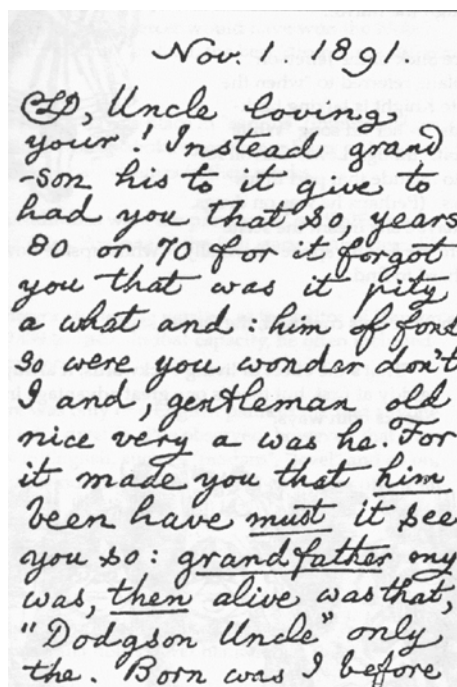 Nov. 1. 1891.
CLD, Uncle loving
your! Instead grand
-son his to it give to
had you that so, years
80 or 70 for it forgot
you that was it pity
a what and: him of fond
so were you wonder don't
I and, gentleman old
nice very a was he. For
it made you that him
been have must it see
you so: grandfather my
was, then alive was that,
"Dodgson Uncle" only
the. Born was I before